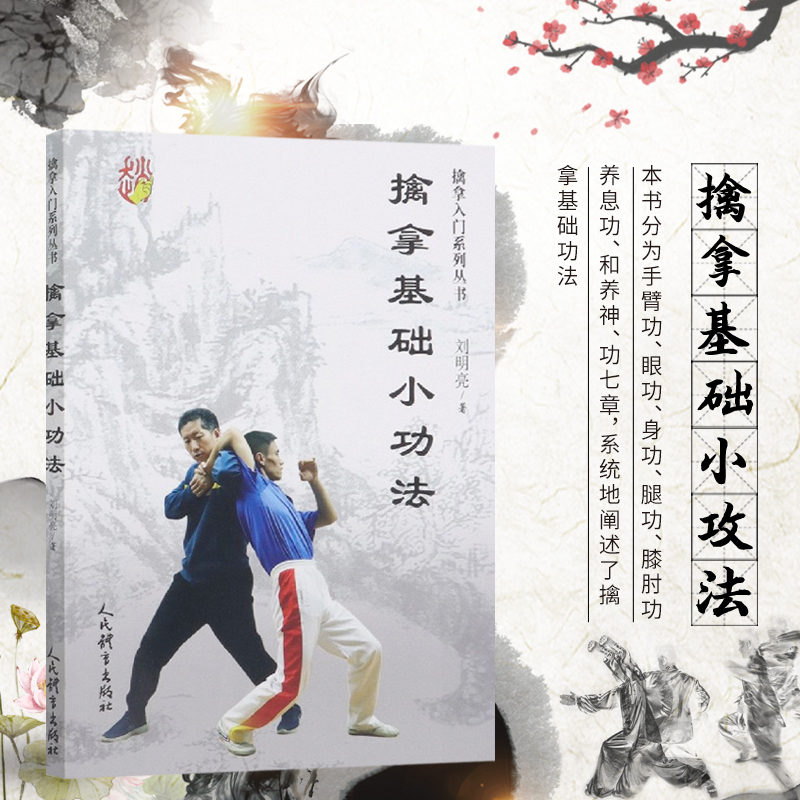 擒拿入门系列丛书
擒拿基础小功法
刘明亮 著
人民体育出版社
擒拿入门系列丛书
擒拿基础小功法
刘明亮/著
人民体育出版社
擒拿基础小攻法
本书分为手臂功、眼功、身功、腿功、膝肘功
养息功、和养神、功七章，系统地阐述了擒
拿基础功法